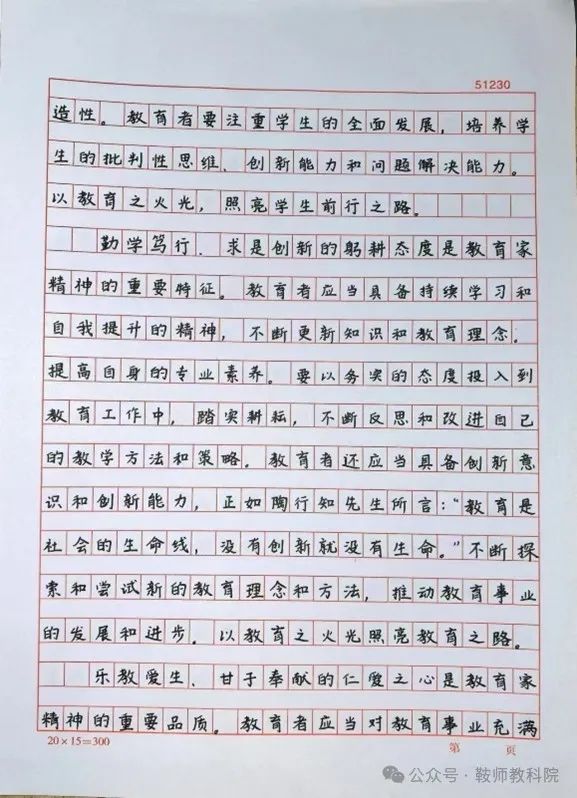 51230
造性。教育者要注重学生的全面发展，培养学
生的批判性思维、创新能力和问题解决能力。
以教育之火光，照亮学生前行之路。
勤学笃行、求是创新的躬耕态度是教育家
精神的重要特征。教育者应当具备持续学习和
自我提升的精神，不断更新知识和教育理念。
提高自身的专业素养。要以务实的态度投入到
教育工作中，踏实耕耘，不断反思和改进自己
的教学方法和策略。教育者还应当具备创新意
识和创新能力，正如陶行知先生所言：“教育是
社会的生命线，没有创新就没有生命。”不断探
索和尝试新的教育理念和方法，推动教育事业
的发展和进步。以教育之火光照亮教育之路。
乐教爱生、甘于奉献的仁爱之心是教育家
精神的重要品质。教育者应当对教育事业充满
20×15=300
第 页
公众号·鞍师教科院